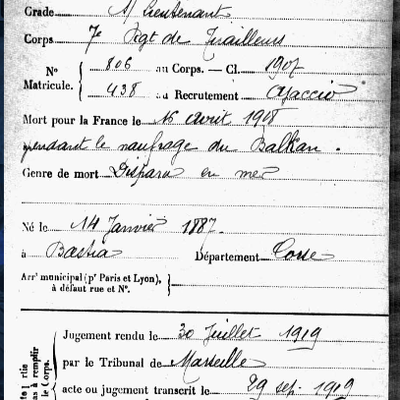 Grade S/ Lieutenant
Corps 7e Rgt de Tirailleurs
No Matricule. 806 au Corps. — Cl. 1907
438 au Recrutement Ajaccio
Mort pour la France le 16 Avril 1918
pendant le naufrage du Balkan.
Genre de mort Disparu en mer
Né le 14 Janvier 1887.
à Bastia Département Corse
Arrt municipal (pr Paris et Lyon), à défaut rue et N°.
Jugement rendu le 30 Juillet 1919
par le Tribunal de Marseille
acte ou jugement transcrit le 29 sep. 1919